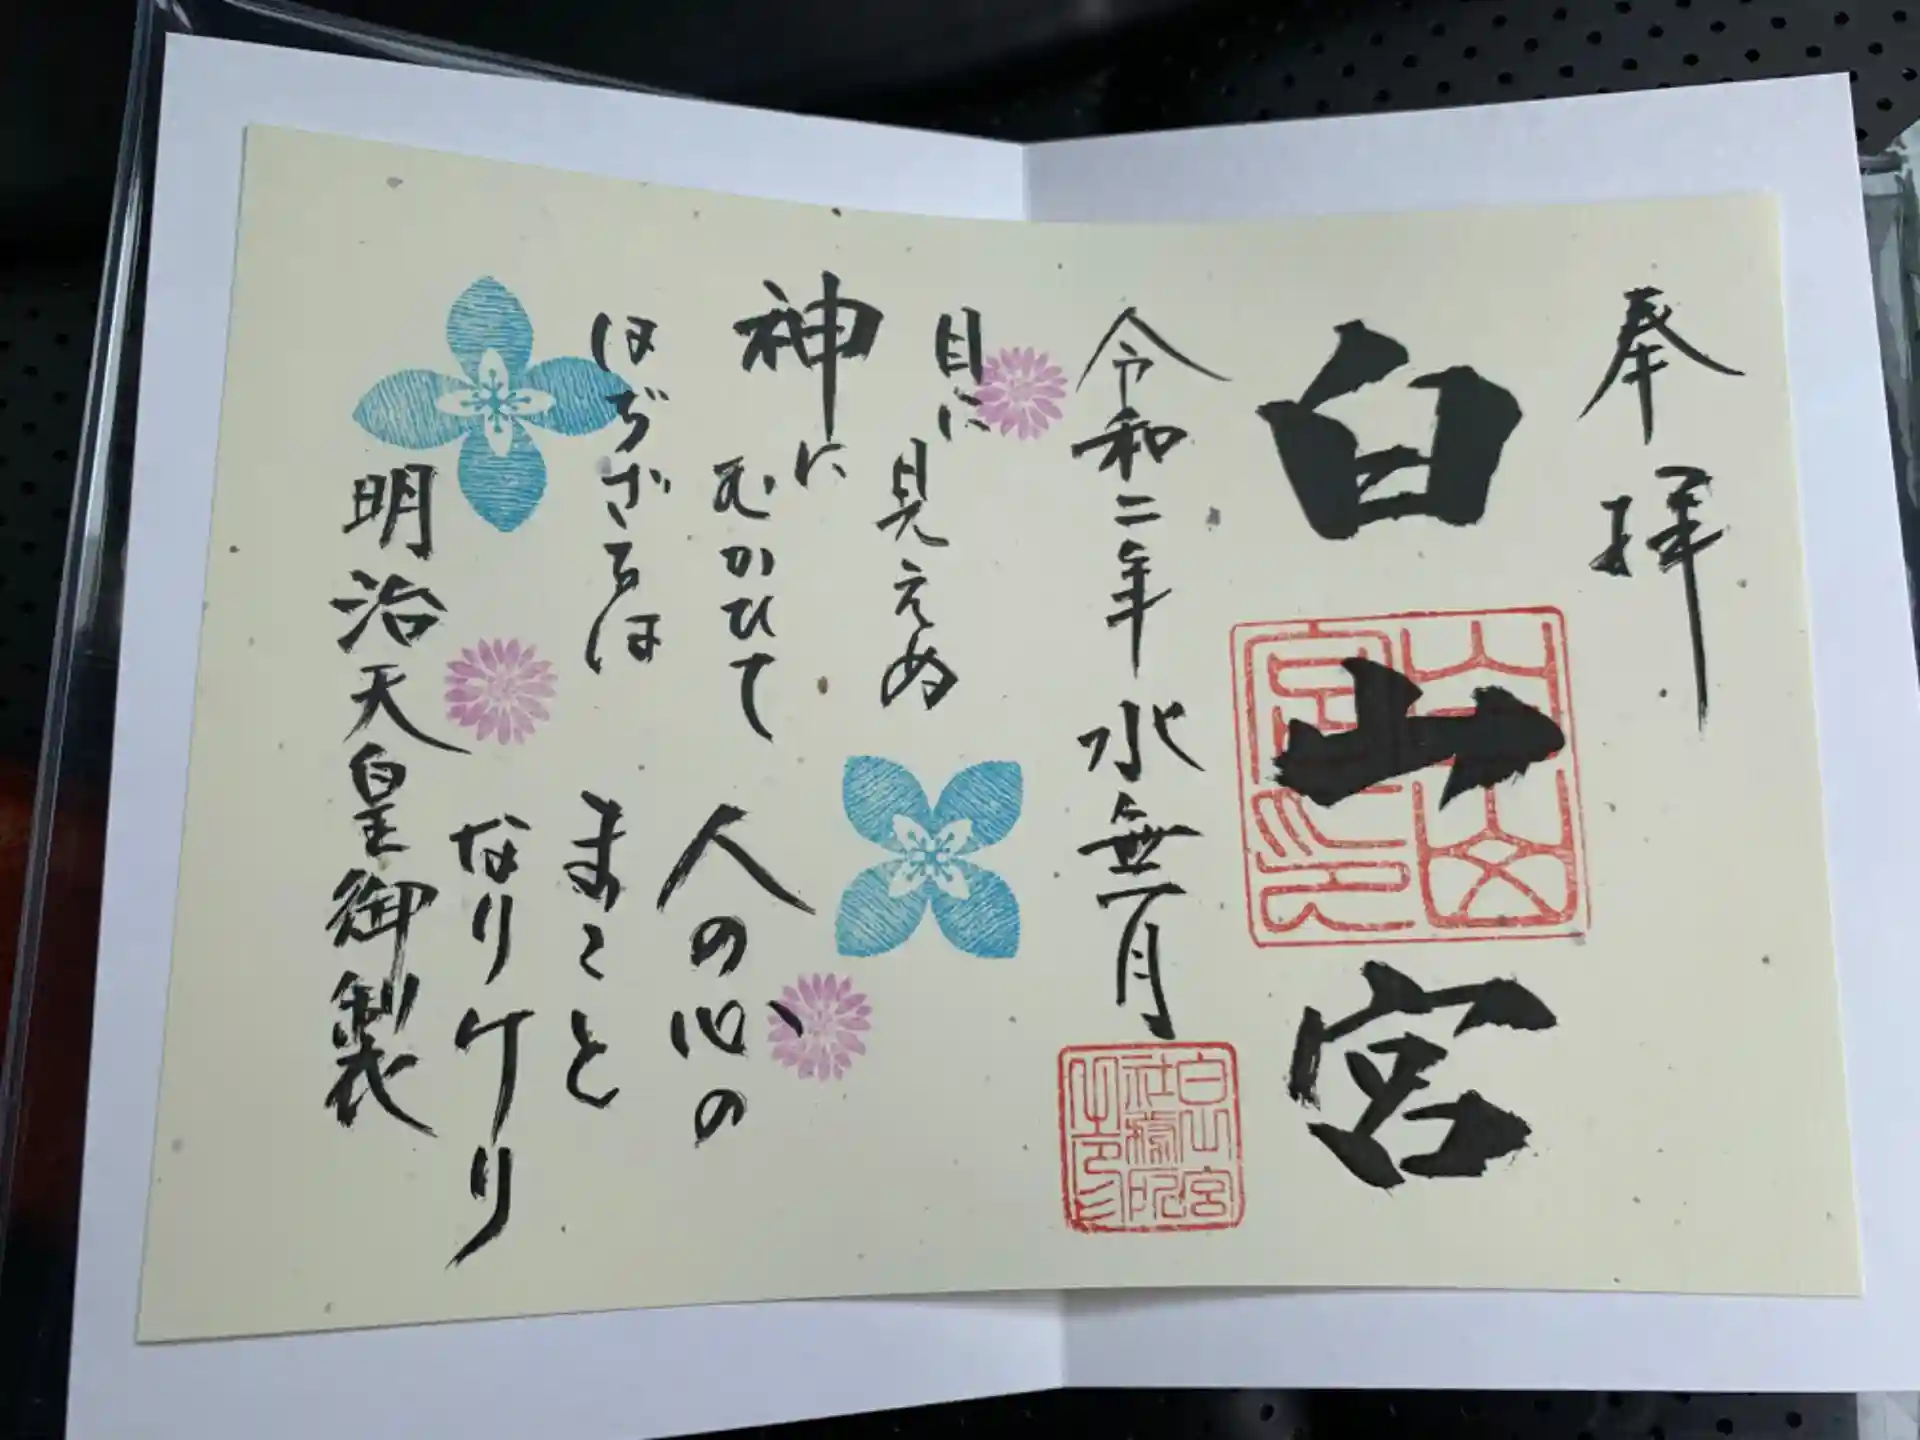 奉拝
白山宮
令和二年水無月
目に見えぬ
神にむかひて
はぢざるは
人の心の
まことなりけり
明治天皇御製
白山宮
社務所
之印